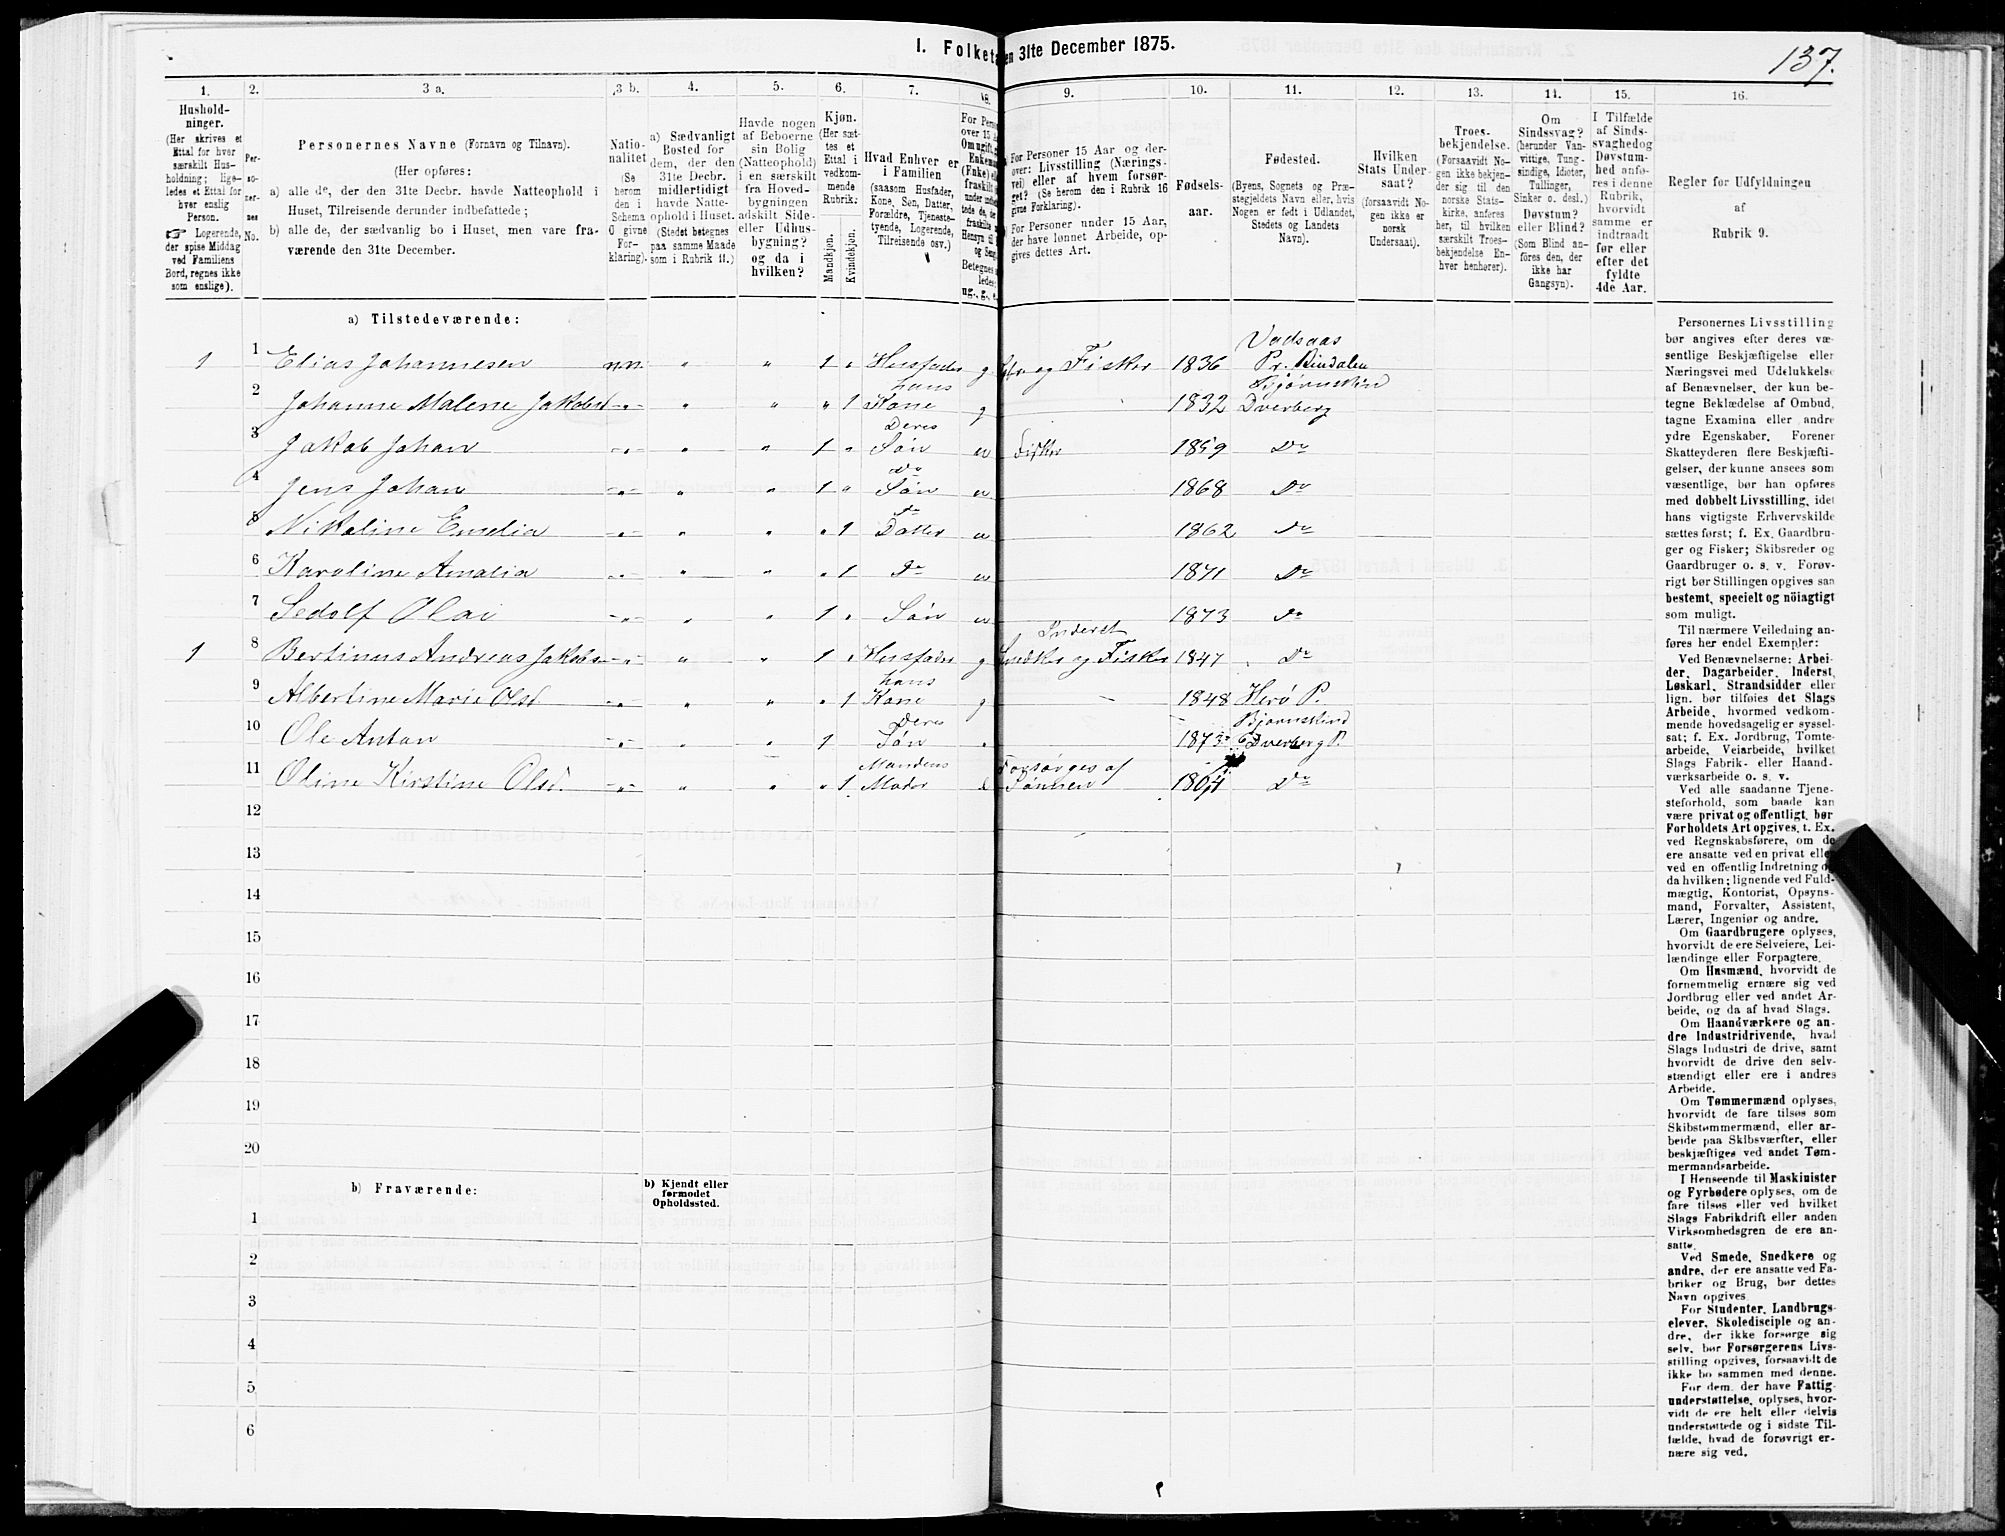 137.
I. Folketa en 31te December 1875.
1. 2. 3 a. 3 b. 4. 5. 6. 7. 8. 9. 10. 11. 12. 13. 14. 15. 16.
Hushold-
ninger.
(Her skrives et
Ettal for hver
særskilt Hus-
holdning; lige-
ledes et Ettal for
hver enslig
Person.
☞ Logerende,
der spise Middag
ved Familiens
Bord, regnes ikke
som enslige).
Per-
so-
ner-
nes
No.
Personernes Navne (Fornavn og Tilnavn).
(Her opføres:
a) alle de, der den 31te Decbr. havde Natteophold i
Huset, Tilreisende derunder indbefattede;
b) alle de, der sædvanlig bo i Huset, men vare fra-
værende den 31te December.
Natio-
nalitet
(Se
herom
den i
Schema
0 givne
For-
klaring).
a) Sædvanligt
Bosted for
dem, der den
31te Decbr.
midlertidigt
havde Natte-
ophold i Huset.
(Stedet betegnes
paa samme Maade
som i Rubrik 11.)
Havde nogen
af Beboerne
sin Bolig
(Natteophold)
i en særskilt
fra Hoved-
bygningen
adskilt Side-
eller Udhus-
bygning?
og da i
hvilken?
Kjøn.
(Her sæt-
tes et
Ettal i
vedkom-
mende
Rubrik.)
Mandkjøn.
Kvindekjøn.
Hvad Enhver er
i Familien
(saasom Husfader,
Kone, Søn, Datter,
Forældre, Tjeneste-
tyende, Logerende,
Tilreisende osv.)
For Personer 15 Aar og der-
over: Livsstilling (Nærings-
vei) eller af hvem forsør-
get? (Se herom den i Rubrik 16
givne Forklaring).
For Personer under 15 Aar,
der have lønnet Arbeide, op-
gives dettes Art.
Fødsels-
aar.
Fødested.
(Byens, Sognets og Præ-
stegjeldets Navn eller, hvis
Nogen er født i Udlandet,
Stedets og Landets
Navn).
Hvilken
Stats Under-
saat?
(forsaavidt No-
gen ikke er
norsk
Undersaat).
Troes-
bekjendelse.
(Forsaavidt No-
gen ikke bekjen-
der sig til den
norske Stats-
kirke, anføres
her, til hvilken
særskilt Troes-
bekjendelse En-
hver henhører).
Om
Sindssvag?
(herunder Van-
vittige, Tung-
sindige, Idioter,
Tullinger,
Sinker o. desl.)
Døvstum?
eller Blind?
(Som Blind an-
føres den, der
ikke har
Gangsyn).
I Tilfælde
af Sinds-
svaghedog
Døvstum-
hed anfø-
res i denne
Rubrik,
hvorvidt
samme er
indtraadt
før eller
efter det
fyldte
4de Aar.
Regler for Udfyldningen
af
Rubrik 9.
a) Tilstedeværende:
1 1 Elias Johannesen n.n. " " 1 " Husfader g og Fisker 1836 Vadsaas Pr. Bindalen
2 Johanne Malene Jakobsd " " " " 1 hans Kone g 1832 Bjørnskind Dverberg
3 Jakob Johan " " " 1 " Deres Søn u Fisker 1859 Do
4 Jens Johan " " " 1 " Do Søn u 1868 Do
5 Nikoline Emelia " " " " 1 do Datter u 1862 Do
6 Karoline Amalia " " " " 1 Do u 1871 Do
7 Sedolf Olai " " " 1 " Søn u 1873 Do
1 8 Bertinus Andreas Jakobs " " " 1 " Husfader g Inderst Snedker og Fisker 1847 Do
9 Albertine Marie Olsd " " " " 1 hans Kone g 1848 Herø P.
10 Ole Anton " " " 1 Deres Søn 1873 Bjørnskind Dverberg P.
11 Oline Kirstine Olsd. " " " " 1 Mandens Moder Forsørges af Sønnen 1804 Do
12
13
14
15
16
17
18
19
20
b) Fraværende:
b) Kjendt eller
formodet
Opholdssted.
1
2
3
4
5
6
Personernes Livsstilling
bør angives efter deres væ-
sentlige Beskjæftigelse eller
Næringsvei med Udelukkelse
af Benævnelser, der kun be-
tegne Beklædelse af Ombud,
tagne Examina eller andre
ydre Egenskaber. Forener
Skatteyderen flere Beskjæfti-
gelser, der kunne ansees som
væsentlige, bør han opføres
med dobbelt Livsstilling, idet
hans vigtigste Erhvervskilde
sættes først; f. Ex. Gaardbru-
ger og Fisker; Skibsreder og
Gaardbruger o. s. v. Forøv-
rigt bør Stillingen opgives saa
bestemt, specielt og nöiagtigt
som muligt.
Til nærmere Veiledning an-
føres her endel Exempler:
Ved Benævnelserne: Arbei-
der, Dagarbeider, Inderst,
Løskarl, Strandsidder eller
lign. bør tilføies det Slags
Arbeide, hvormed vedkom-
mende hovedsagelig er syssel-
sat; f. Ex. Jordbrug, Tomte-
arbeide, Veiarbeide, hvilket
Slags Fabrik- eller Haand-
værksarbeide o. s. v.
Ved alle saadanne Tjene-
steforhold, som baade kan
være privat og offentligt, bør
Forholdets Art opgives, t. Ex.
ved Regnskabsførere, om de
ere ansatte ved en privat eller
ved en offentlig Indretning og
da hvilken; lignende ved Fuld-
mægtig, Kontorist, Opsyns-
mand, Forvalter, Assistent,
Lærer, Ingeniør og andre.
Om Gaardbrugere oplyses,
hvorvidt de ere Selveiere, Lei-
lændinge eller Forpagtere.
Om Husmænd, hvorvidt de
fornemmelig ernære sig ved
Jordbrug eller ved andet Ar-
beide, og da af hvad Slags.
Om Haandværkere og an-
dre Industridrivende, hvad
Slags Industri de drive, samt
hvorvidt de drive den selv-
stændigt eller ere i andres
Arbeide.
Om Tømmermænd oplyses,
hvorvidt de fare tilsøs som
Skibstømmermænd, eller ar-
beide paa Skibsværfter, eller
beskjæftiges ved andet Tøm-
mermandsarbeide.
I Henseende til Maskinister
og Fyrbødere oplyses, om de
fare tilsøs eller ved hvilket
Slags Fabrikdrift eller anden
Virksomhedsgren de ere an-
satte.
Ved Smede, Snedkere og
andre, der ere ansatte ved Fa-
briker og Brug, bør dettes
Navn opgives.
For Studenter, Landbrugs-
elever, Skoledisciple og an-
dre, der ikke forsørge sig
selv, bør Forsørgerens Livs-
stilling opgives, forsaavidt de
ikke bo sammen med denne.
For dem, der have Fattig-
understøttelse, oplyses, hvor-
vidt de ere helt eller delvis
understøttede og i sidste Til-
fælde, hvad de forøvrigt er-
nære sig ved.